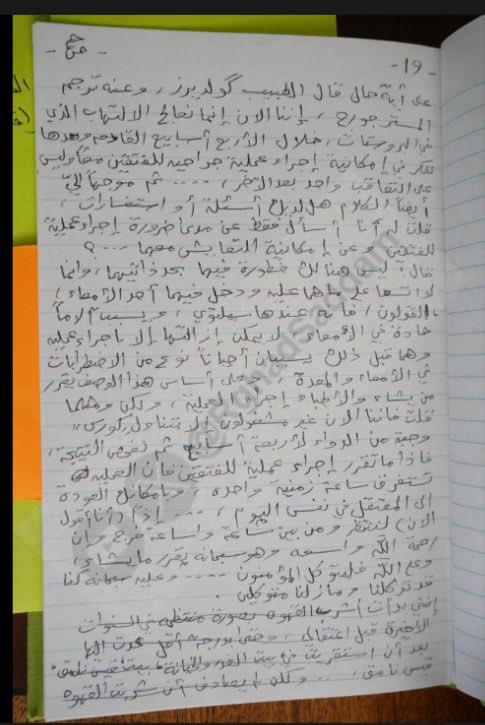 - 19 -
على أية حال قال الطبيب گولديرز، وعنه ترجم
المستر جورج، إننا الان إنما نعالج الالتهاب الذي
في البروستات، خلال الأربع أسابيع القادمة وبعدها
نفكر في إمكانية إجراء عملية جراحية للفتقين معاً وليس
على التعاقب واحد بعد الآخر، .... ثم موجهاً إليّ
أيضاً الكلام هل لديك أسئلة أو استفسارات،
قلت له أنا أسأل فقط عن مدى ضرورة إجراء عملية
للفتقين وعن إمكانية التعايش معهما ...؟
قال: ليس هنالك خطورة فيهما بحد ذاتيهما، وانما
لو اتسعا على ما هما عليه ودخل فيهما أحد الأمعاء،
القولون، فانه عندها سيلتوي، ويسبب آلاماً
حادة في الأمعاء، ولا يمكن إزالتها إلا باجراء عملية
وهما قبل ذلك يسببان أحياناً نوع من الاضطرابات
في الأمعاء والمعدة، وعلى أساس هذا الوصف يقرر
من يشاء والأطباء إجراء العملية، ولكن ومثلما
قلت فاننا الان غير مشغولين إلا بتناول كورس
وجبة من الدواء لأربعة أسابيع ثم نفحص النتيجة،
فاذا ما تقرر إجراء عملية للفتقين فان العملية
تستغرق ساعة زمنية واحدة، وبإمكانك العودة
الى المعتقل في نفس اليوم، .... إذاً (أنا أقول
الان) لننتظر ومن بين ساعة وساعة فرج وان
رحمة الله واسعة وهو سبحانه يقرر ما يشاء،
وعلى الله فليتوكل المؤمنون .... وعليه سبحانه كنا
قد توكلنا وما زلنا متوكلين.
إنني بدأت أشرب القهوة بصورة منتظمة في السنوات
الأخيرة قبل اعتقالي، وحتى بدرجة أقل عدت اليها
بعد أن استقريت في بيت الغدر والخيانة، بيت قيس نامق،
قيس نامق، ... ولكن لم يصادف أن شربت القهوة
@RghadSaddam